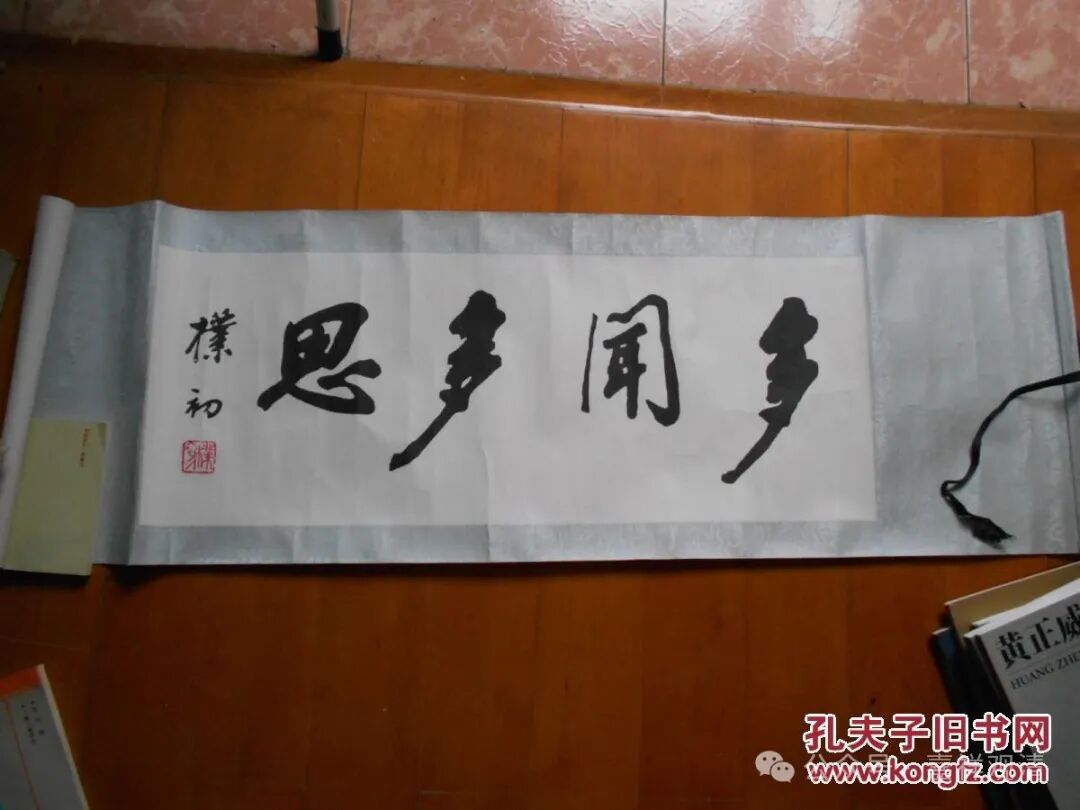 多聞多思
樸初
黄正威
HUANG ZHE
孔夫子旧书网
www.kongfz.com
公众号